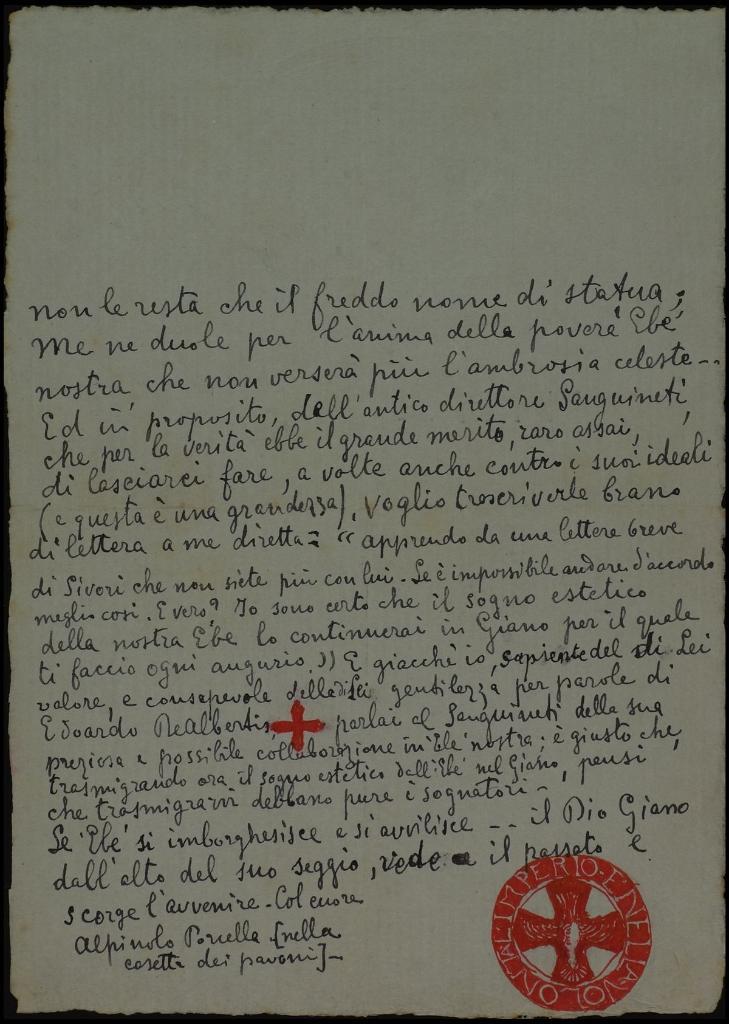 non le resta che il freddo nome di statua;
me ne duole per l'anima della povera Ebe
nostra che non verserà più l'ambrosia celeste--
Ed in proposito, dall'antico direttore Sanguineti,
che per la verità ebbe il grande merito, raro assai,
di lasciarci fare, a volte anche contro i suoi ideali
(e questa è una grandezza), voglio trascriverle brano
di lettera a me diretta = "apprendo da una lettera breve
di Sivori che non siete più con lui - Se è impossibile andare d'accordo
meglio così. E vero? Io sono certo che il sogno estetico
della nostra Ebe lo continuerai in Giano per il quale
ti faccio ogni augurio." E giacchè io, sapiente del di Lei
valore, e consapevole della di Lei gentilezza per parole di
Edoardo DeAlbertis, parlai al Sanguineti della sua
preziosa e possibile collaborazione in "Ebe" nostra; è giusto che,
trasmigrando ora il sogno estetico dall'Ebe nel Giano, pensi
che trasmigrarvi debbano pure i sognatori -
Se "Ebe" si imborghesisce e si avvilisce -- il Dio Giano
dall'alto del suo seggio, vede il passato e
scorge l'avvenire - Col cuore
Alpinolo Porcella [nella
casetta dei pavoni] -
L'IMPERIO·E·NELLA·VOLONTA